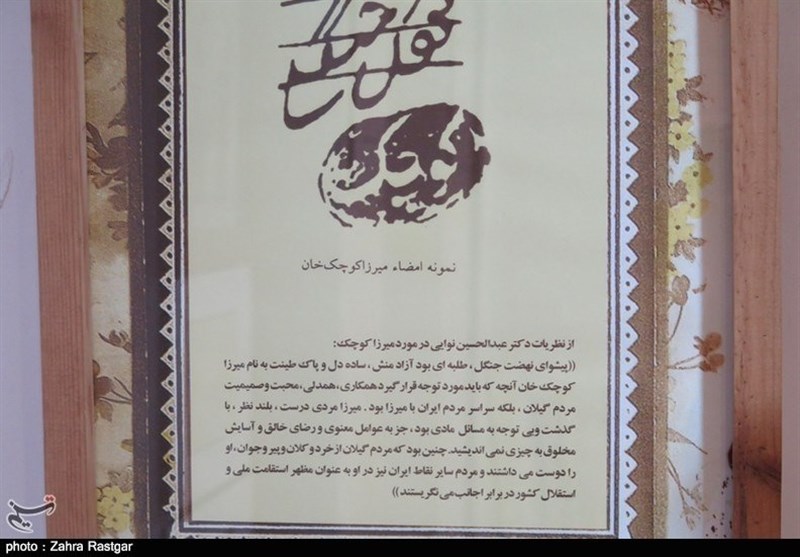 نمونه امضاء میرزاکوچک‌خان
از نظریات دکتر عبدالحسین نوایی در مورد میرزا کوچک:
((پیشوای نهضت جنگل ، طلبه ای بود آزاد منش ، ساده دل و پاک طینت به نام میرزا
کوچک خان آنچه که باید مورد توجه قرار گیرد همکاری ، همدلی ، محبت و صمیمیت
مردم گیلان ، بلکه سراسر مردم ایران با میرزا بود . میرزا مردی درست ، بلند نظر ، با
گذشت وبی توجه به مسائل مادی بود ، جز به عوامل معنوی و رضای خالق و آسایش
مخلوق به چیزی نمی اندیشید. چنین بود که مردم گیلان از خرد و کلان و پیر و جوان ، او
را دوست می داشتند و مردم سایر نقاط ایران نیز در او به عنوان مظهر استقامت ملی و
استقلال کشور در برابر اجانب می نگریستند ))
photo : Zahra Rastgar